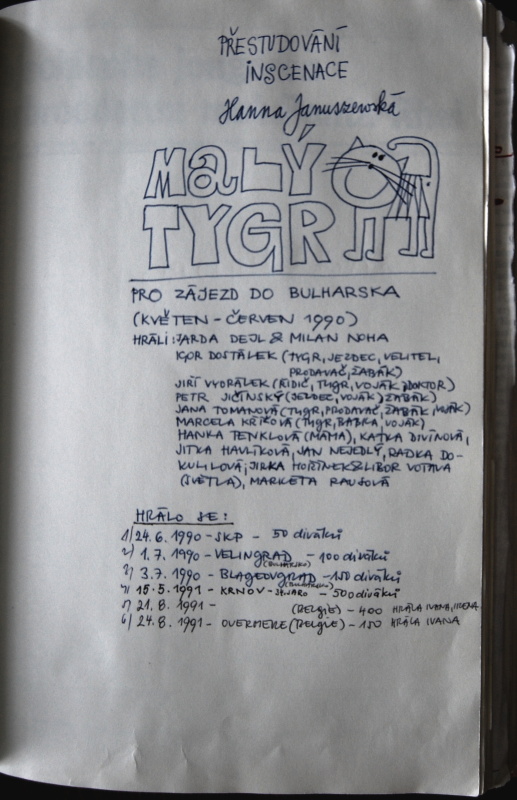 PŘESTUDOVÁNÍ
INSCENACE
Hanna Januszewská
MALÝ
TYGR
PRO ZÁJEZD DO BULHARSKA
(KVĚTEN - ČERVEN 1990)
HRÁLI: JARDA DEJL & MILAN NOHA
IGOR DOSTÁLEK (TYGR, JEZDEC, VELITEL,
PRODAVAČ, ŽABÁK)
JIŘÍ VYDRÁLEK (ŘIDIČ, TYGR, VOJÁK, DOKTOR)
PETR JIČÍNSKÝ (JEZDEC, VOJÁK, ŽABÁK)
JANA TOMANOVÁ (TYGR, PRODAVAČ, ŽABÁK, VOJÁK)
MARCELA KŘÍKOVÁ (TYGR, BABKA, VOJÁK)
HANKA TENKLOVÁ (MÁMA), KATKA DIVÍNOVÁ,
JITKA HAVLÍKOVÁ, JAN NEJEDLÝ, RADKA DO-
KULILOVÁ, JIRKA HOŘÍNEK & LIBOR VOTAVA
(SVĚTLA), MARKÉTA RAUŠOVÁ
HRÁLO SE:
1/ 24.6.1990 - SKP - 50 diváků
2/ 1.7.1990 - VELINGRAD (BULHARSKO) - 100 diváků
3/ 3.7.1990 - BLAGEOVGRAD (BULHARSKO) - 150 diváků
4/ 15.5.1991 - KRNOV - - 500 diváků
5/ 21.8.1991 - (Belgie) - 400 HRÁLA IVANA,
6/ 24.8.1991 - OVERMERE (Belgie) - 150 HRÁLA IVANA